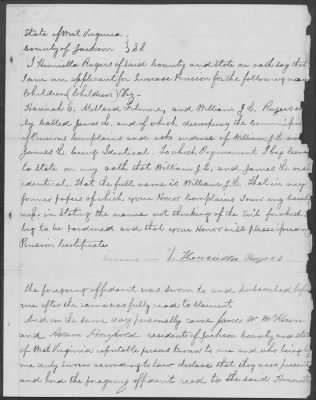 State of West Virginia
County of Jackson } SS
I Henrietta Rogers of said County and State on oath say that
I am an applicant for Increase Pension for the following named
Children (Children) Viz -
Hannah E. Millard Filmore, and William J. L. Rogers
only called James L. and of which discrepency the Commissioner
of Pensions complains and asks evidence of William J. L. and
James L. being Identical. To which Requirement I beg leave
to State on my oath that William J. L. and James L. are
identical. That the full name is William J. L. That in my
former papers of which your Honor Complains I own my
in stating the name not thinking of the for which I
beg to be pardoned and that your Honor will please
Pension Certificate
Henrietta Rogers
The foregoing affidavit was sworn to and subscribed before
me after the same was fully read to claimant.
And on the same day personally came James W. McKown
and Adam residents of Jackson County and State
of West Virginia reputable persons known to me and who being by
me duly sworn according to law declare that they were present
and heard the foregoing affidavit read to the said Henrietta